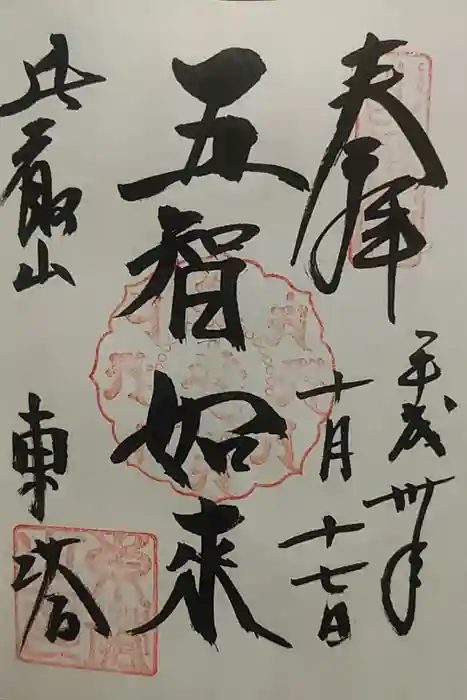 奉拝
平成卅年
十月十七日
五智如来
比叡山
東塔